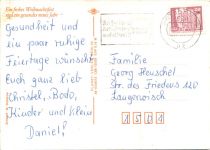 Ein frohes Weihnachtsfest
und ein gesundes neues Jahr
Gesundheit und
ein paar ruhige
Feiertage wünscht
Euch ganz lieb
Christel, Bodo,
Kinder und Klein
Daniel!
Familie
Georg Heuschel
Str. des Friedens 120